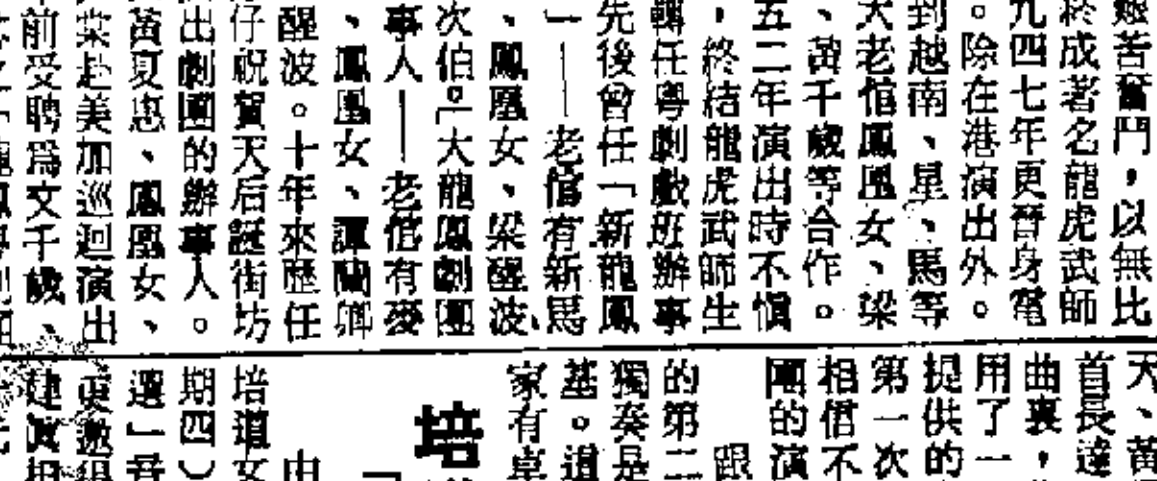 艱苦奮鬥,以無比
終成著名龍虎武師
九四七年更晉身電
。除在港演出外。
到越南、星、馬等
大老倌鳳凰女、梁
、黃千歲等合作。
五二年演出時不慎
,終結龍虎武師生
轉任粵劇戲班辦事
先後曾任「新龍鳳
」——老倌有新馬
、鳳凰女、梁醒波、
次伯。「大龍鳳劇團
事人——老倌有麥
、鳳凰女、譚蘭卿
醒波。十年來歷任
仔祝賀天后誕街坊
出劇團的辦事人。
黃夏惠、鳳凰女、
棠赴美加巡迴演出
前受聘爲文千歲、
天、黃
首長達
曲裏,
用了一
提供的
第一次
相信不
團的演
跟
的第二
獨奏是
基。道
家有卓
培
「
由
培道女
期四)
選」音
更邀得
建